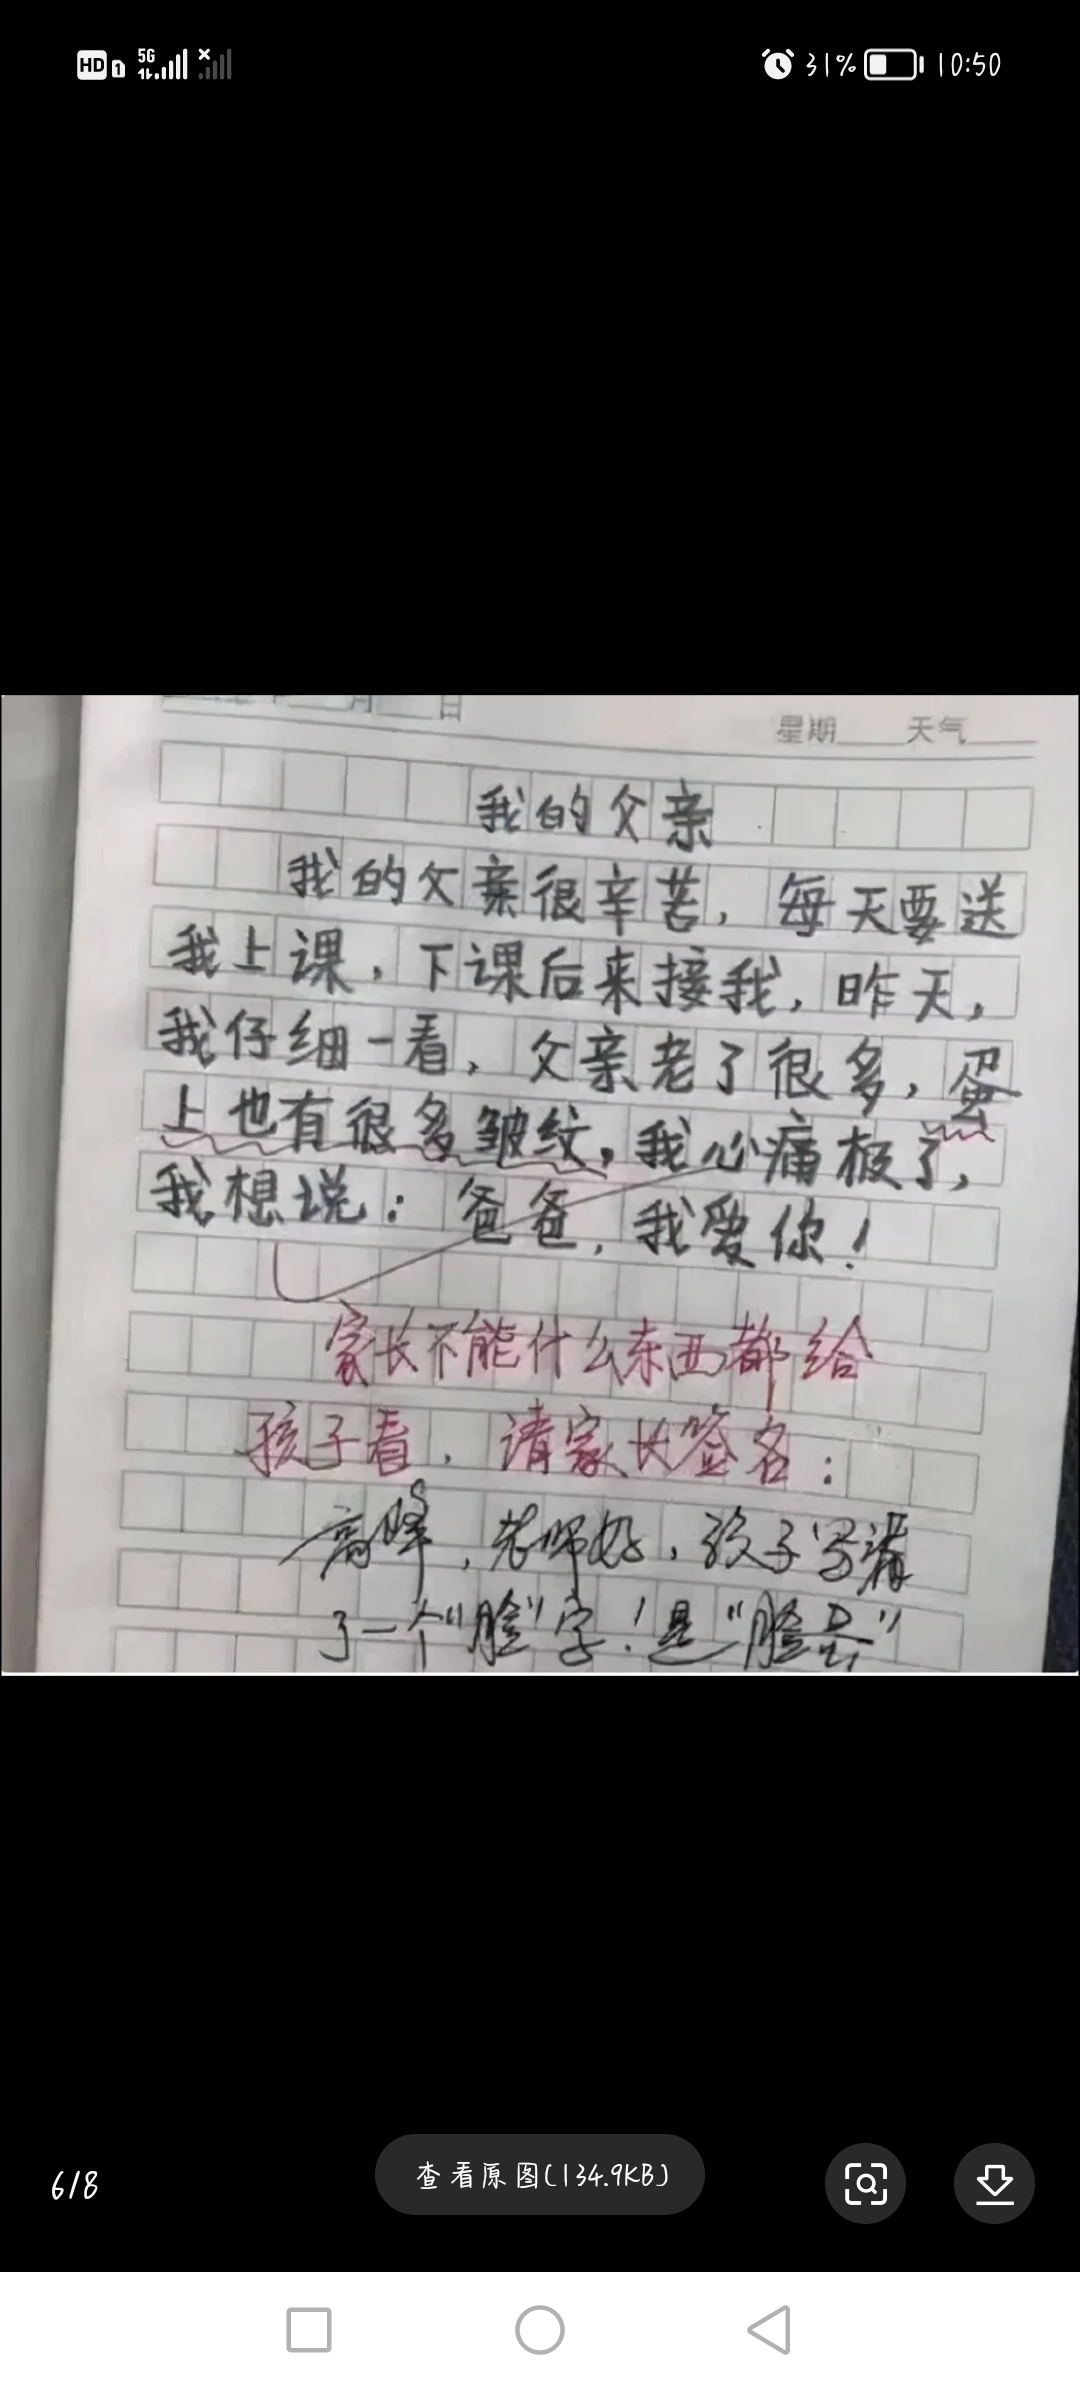 HD 1 5G 31% 10:50
月 日
星期 天气
我的父亲
我的父亲很辛苦，每天要送
我上课，下课后来接我，昨天，
我仔细一看，父亲老了很多，蛋
上也有很多皱纹，我心痛极了，
我想说：爸爸，我爱你！
家长不能什么东西都给
孩子看，请家长签名：
高峰，老师好，孩子写漏
了一个“脸”字！是“脸蛋”
6/8
查看原图(134.9KB)